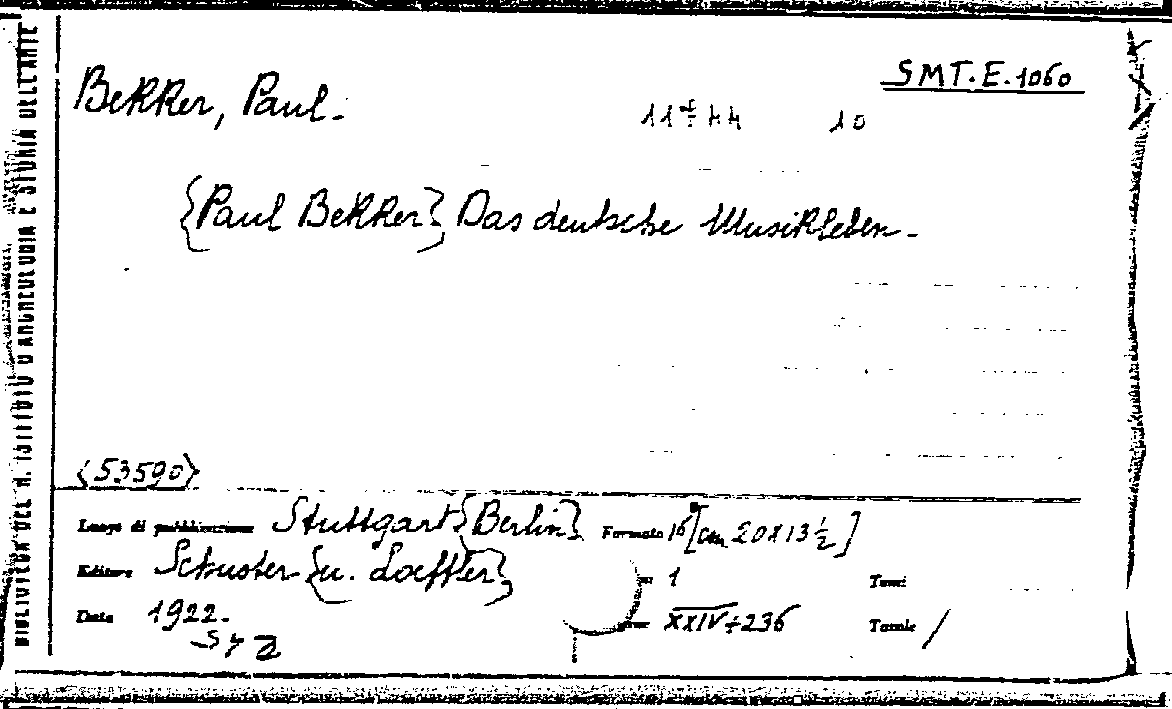 SMT.E.1060
Bekker, Paul.
11 ÷ 44 10
{Paul Bekker} Das deutsche Musikleben.
<53590>
Luogo di pubblicazione Stuttgart {Berlin} Formato 16° [cm 20x13 1/2]
Editore Schuster {u. Loeffler} 1 Tomi
Data 1922. XXIV÷236 Tavole /
BIBLIOTECA DEL R. ISTITUTO D'ARCHEOLOGIA E STORIA DELL'ARTE